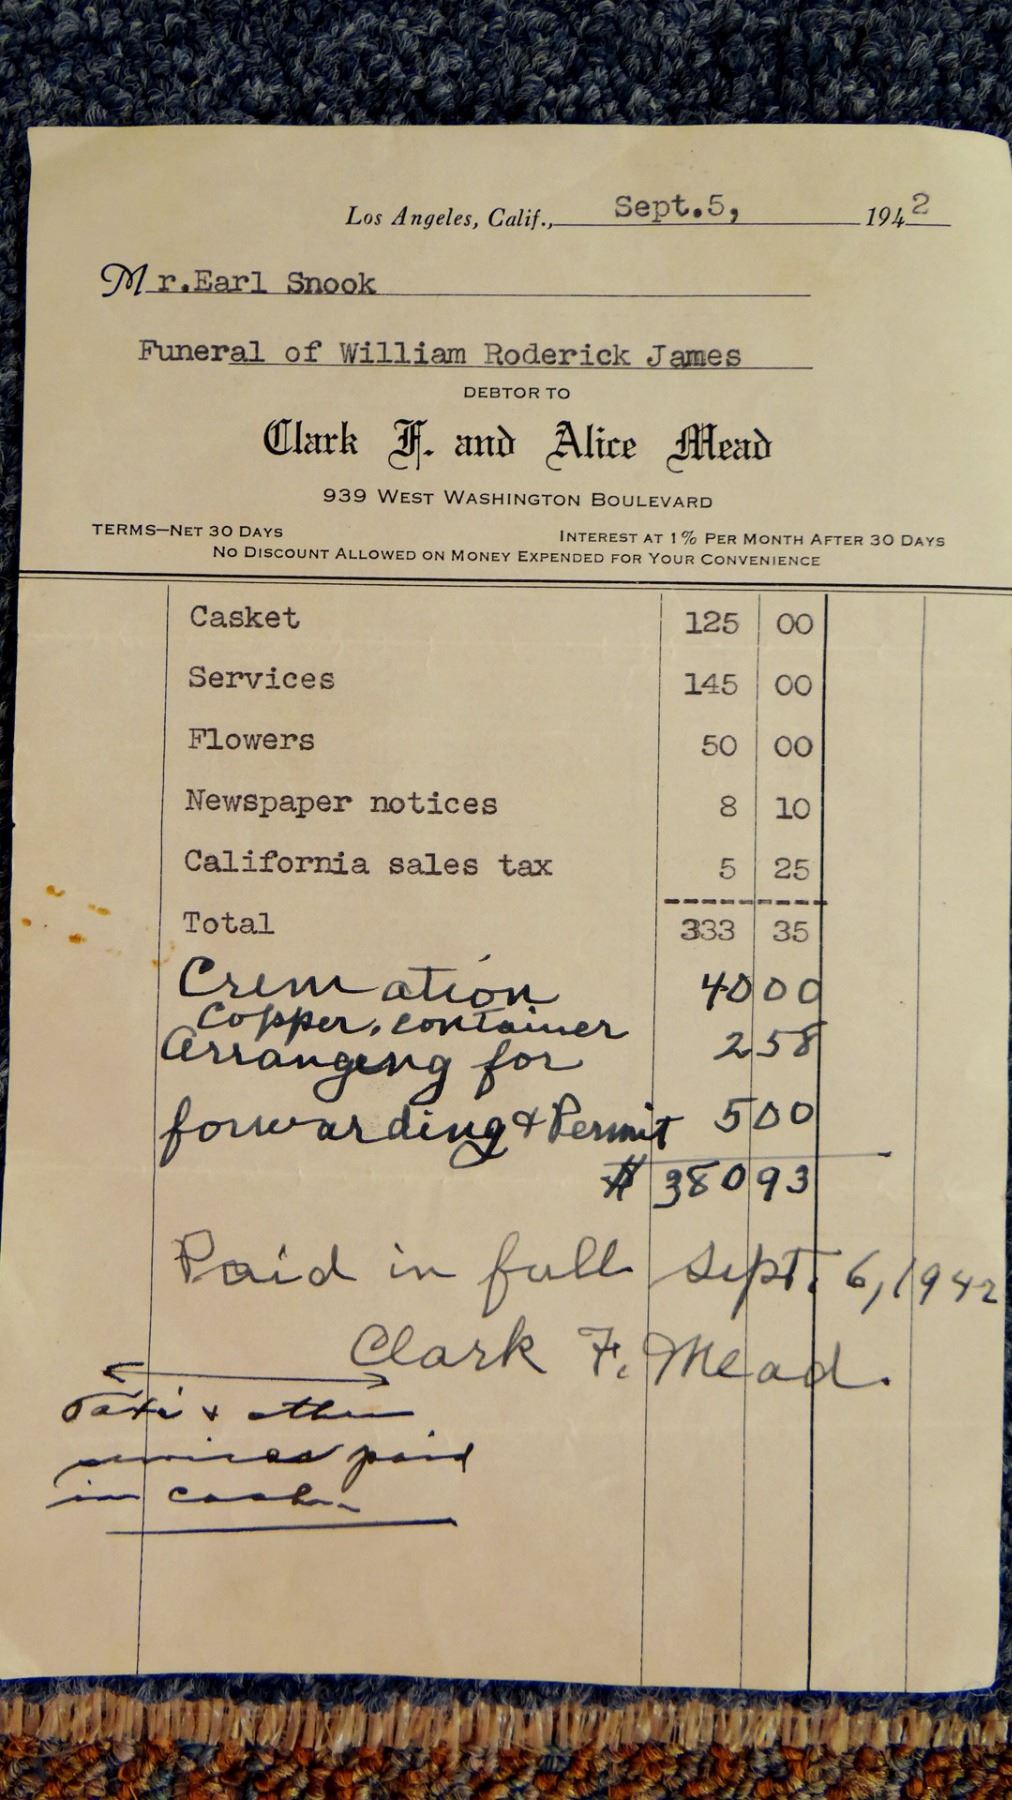 Los Angeles, Calif., Sept.5, 1942
Mr.Earl Snook
Funeral of William Roderick James
DEBTOR TO
Clark F. and Alice Mead
939 WEST WASHINGTON BOULEVARD
TERMS—NET 30 DAYS INTEREST AT 1% PER MONTH AFTER 30 DAYS
NO DISCOUNT ALLOWED ON MONEY EXPENDED FOR YOUR CONVENIENCE
Casket 125 00
Services 145 00
Flowers 50 00
Newspaper notices 8 10
California sales tax 5 25
Total 333 35
Cremation 40 00
Copper, container 2 58
Arranging for
forwarding & Permit 5 00
$ 380 93
Paid in full Sept. 6, 1942
Clark F. Mead.
Taxi & other
services paid
in cash.